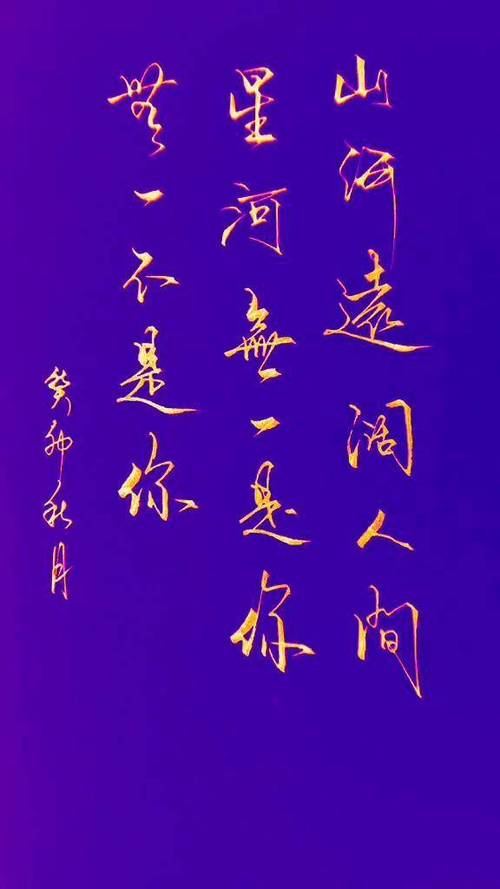 山河遠阔人间
星河無一是你
無一不是你
癸卯秋月